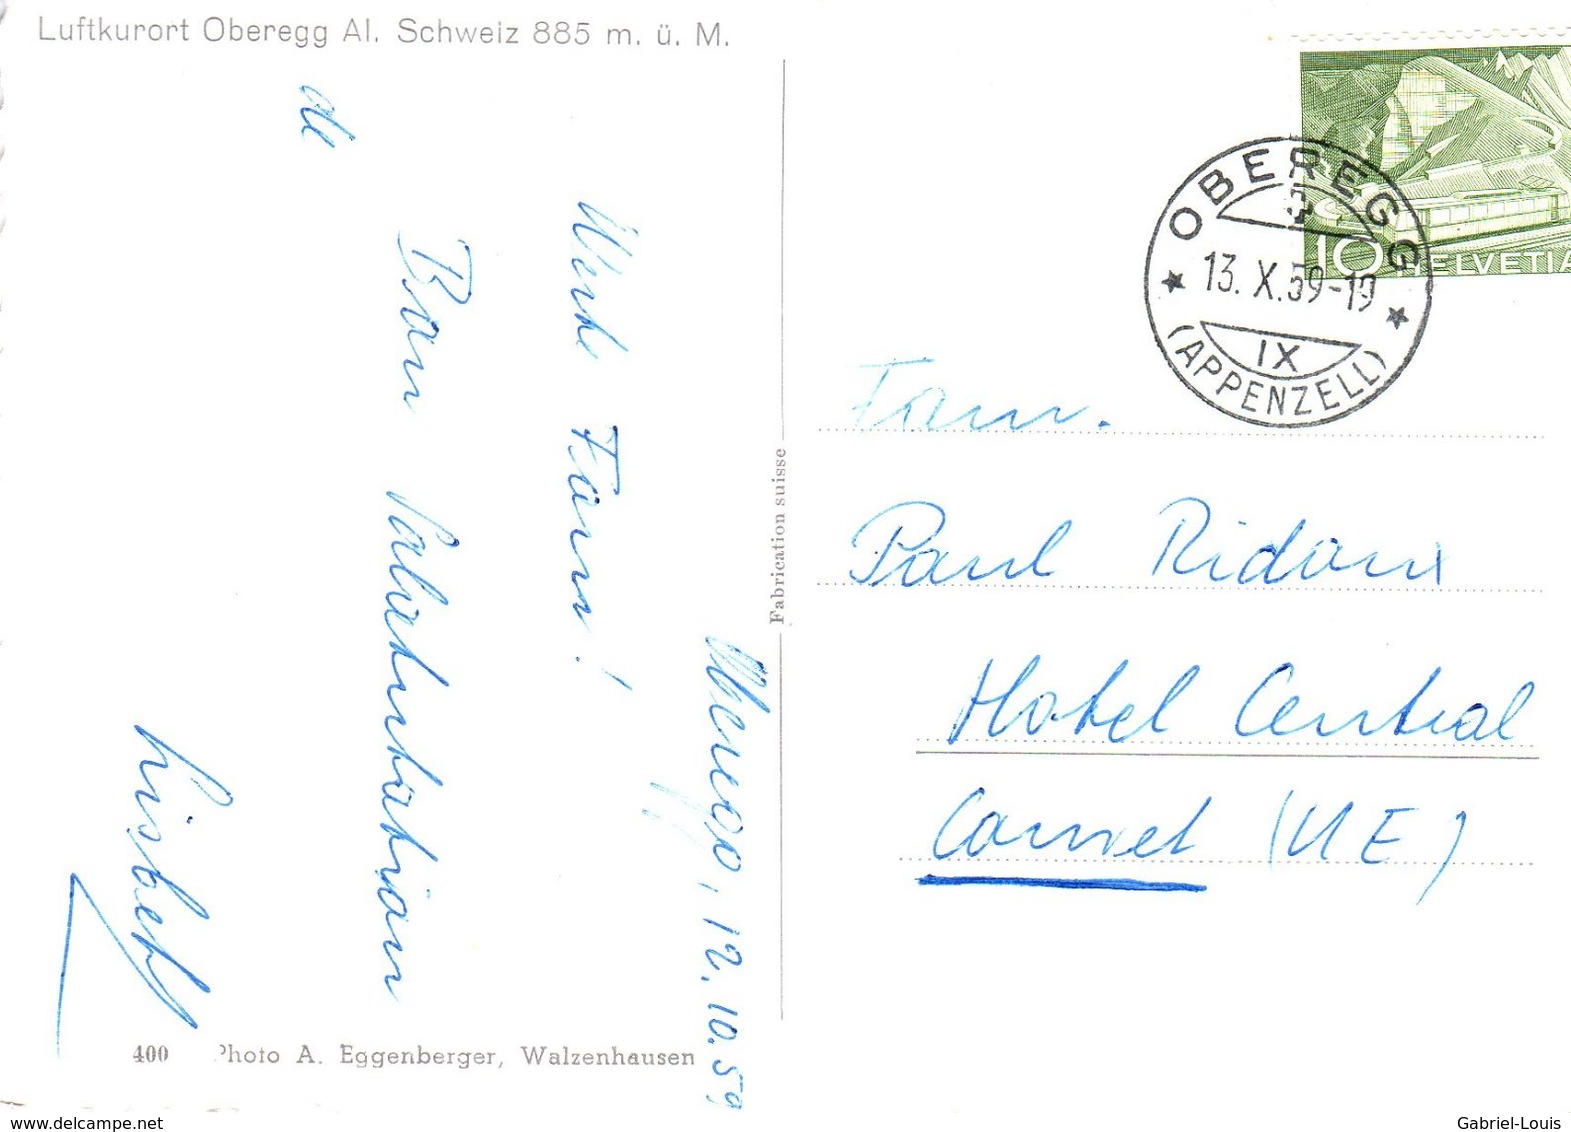 Luftkurort Oberegg AI. Schweiz 885 m. ü. M.
Oberegg, 12.10.59
Werte Fam!
Bon
de
Lisbeth
400 Photo A. Eggenberger, Walzenhausen
Fabrication suisse
10 HELVETIA
OBEREGG
13. X. 59-19
IX
(APPENZELL)
Fam.
Paul Ridoux
Hotel Central
Couvet (NE)
delcampe.net
Gabriel-Louis